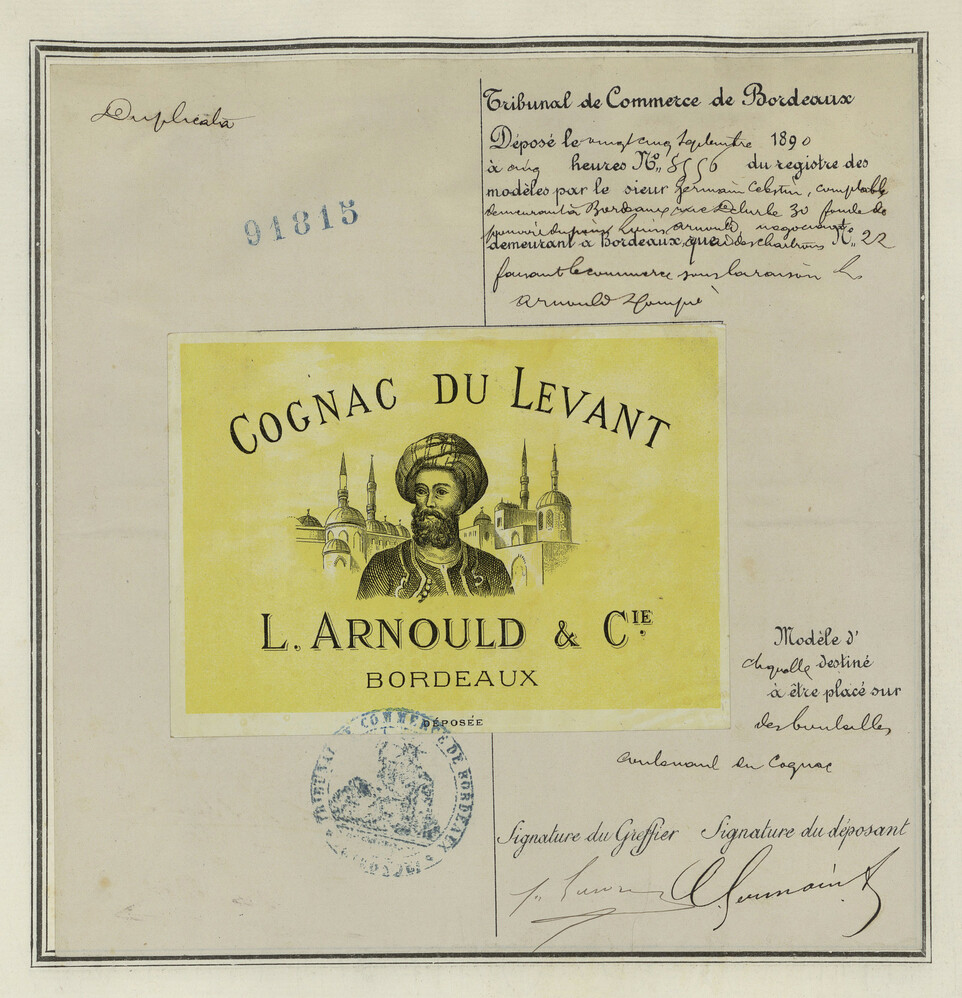 Duplicata
91815
Tribunal de Commerce de Bordeaux
Déposé le vingt cinq Septembre 1890
à cinq heures N° 8556 du registre des
modèles par le sieur Germain Célestin, comptable
demeurant à Bordeaux rue Delurbe 30 fondé de
pouvoirs du sieur Louis Arnould, négociant
demeurant à Bordeaux, quai des Chartrons N° 22
faisant le commerce sous la raison L.
Arnould & Compie
COGNAC DU LEVANT
L. ARNOULD & CIE.
BORDEAUX
DÉPOSÉE
Modèle d'
étiquette destiné
à être placé sur
des bouteilles
contenant du Cognac
TRIBUNAL DE COMMERCE DE BORDEAUX
Signature du Greffier Signature du déposant
C. Germain